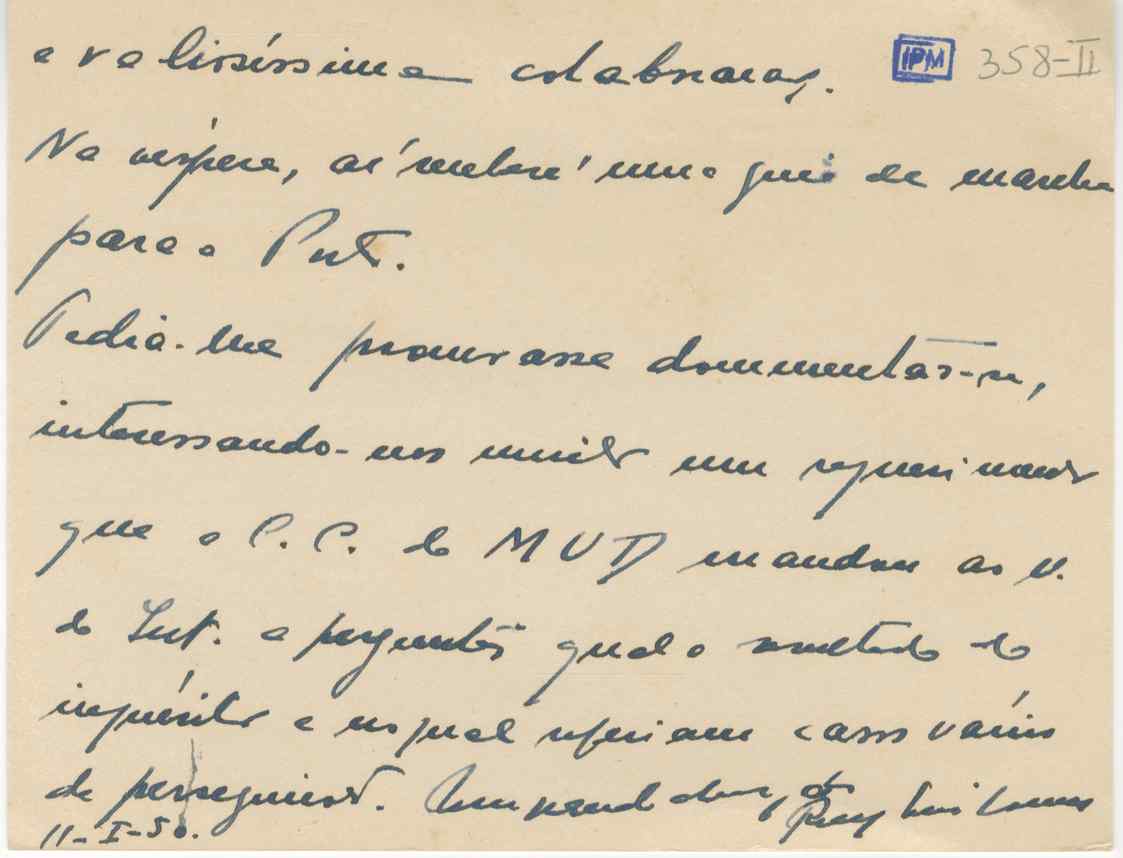 e valiosíssima colaboração.
IPM 358-II
Na véspera, aí receberá uma guia de marcha
para o Porto.
Pedia-lhe procurasse documentar-se,
interessando-nos muito um requerimento
que a C. C. do MUD mandou ao M.
do Int. a perguntar qual o resultado do
inquérito e no qual referiam casos vários
de perseguições. Um grande abraço, do Ruy Luís Gomes
11-I-50.